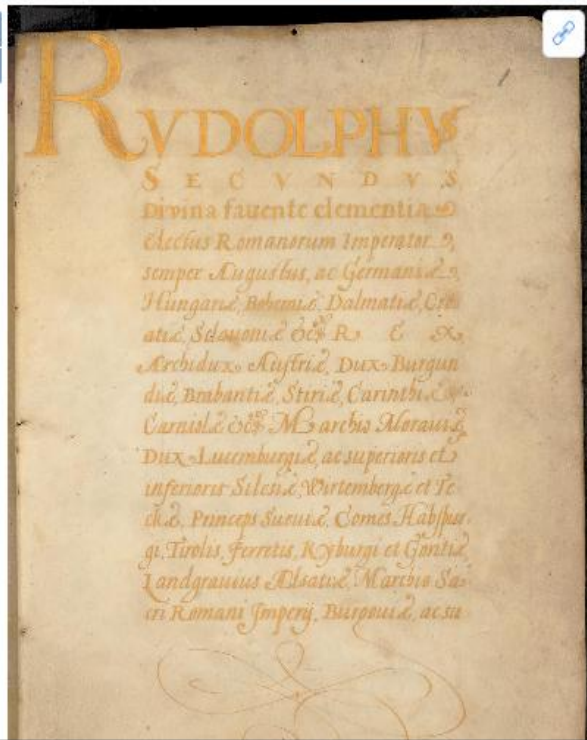 RVDOLPHVS
SECVNDVS
Divina favente clementia
Electus Romanorum Imperator
semper Augustus, ac Germaniæ,
Hungariæ, Bohemiæ, Dalmatiæ, Cro
atiæ, Sclavoniæ &c. REX
Archidux Austriæ, Dux Burgun
diæ, Brabantiæ, Stiriæ, Carinthiæ,
Carniolæ &c. Marchio Moraviæ,
Dux Lucemburgiæ, ac superioris et
inferioris Silesiæ, Wirtembergæ et Te
ckæ, Princeps Sueviæ, Comes Habspur
gi, Tirolis, Ferretis, Kyburgi et Goritiæ,
Landgravius Alsatiæ, Marchio Sa
cri Romani Imperij, Burgoviæ, ac su